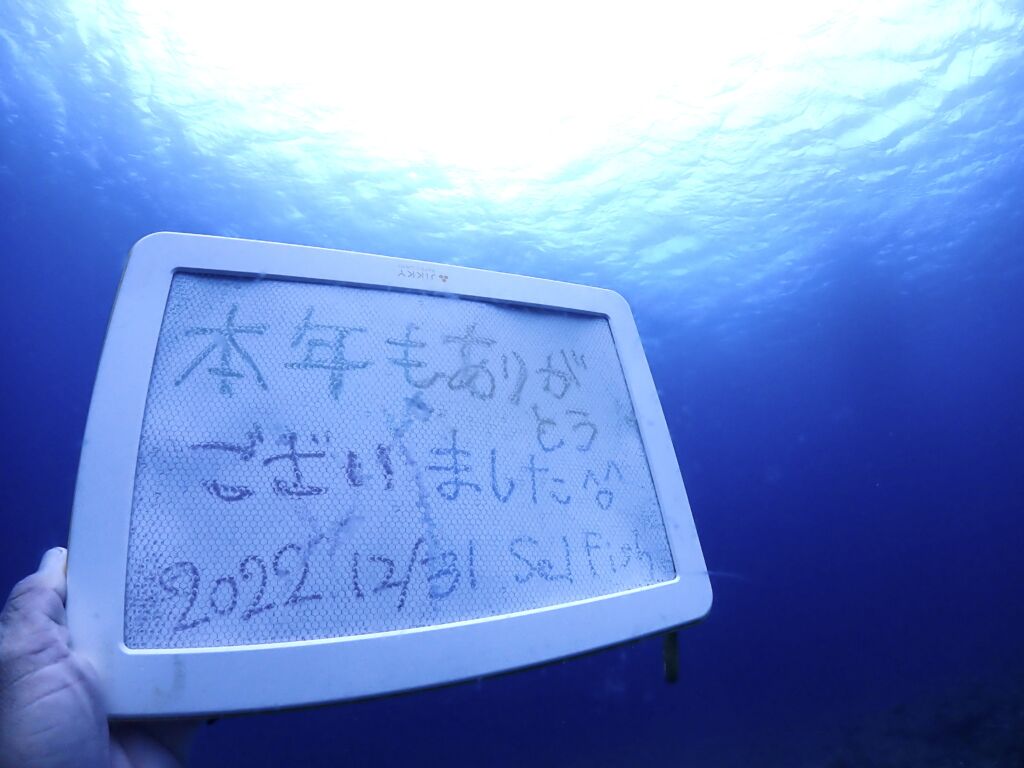 JIKKY
本年もありが
とう
ございました^^
2022 12/31 Sea Fish